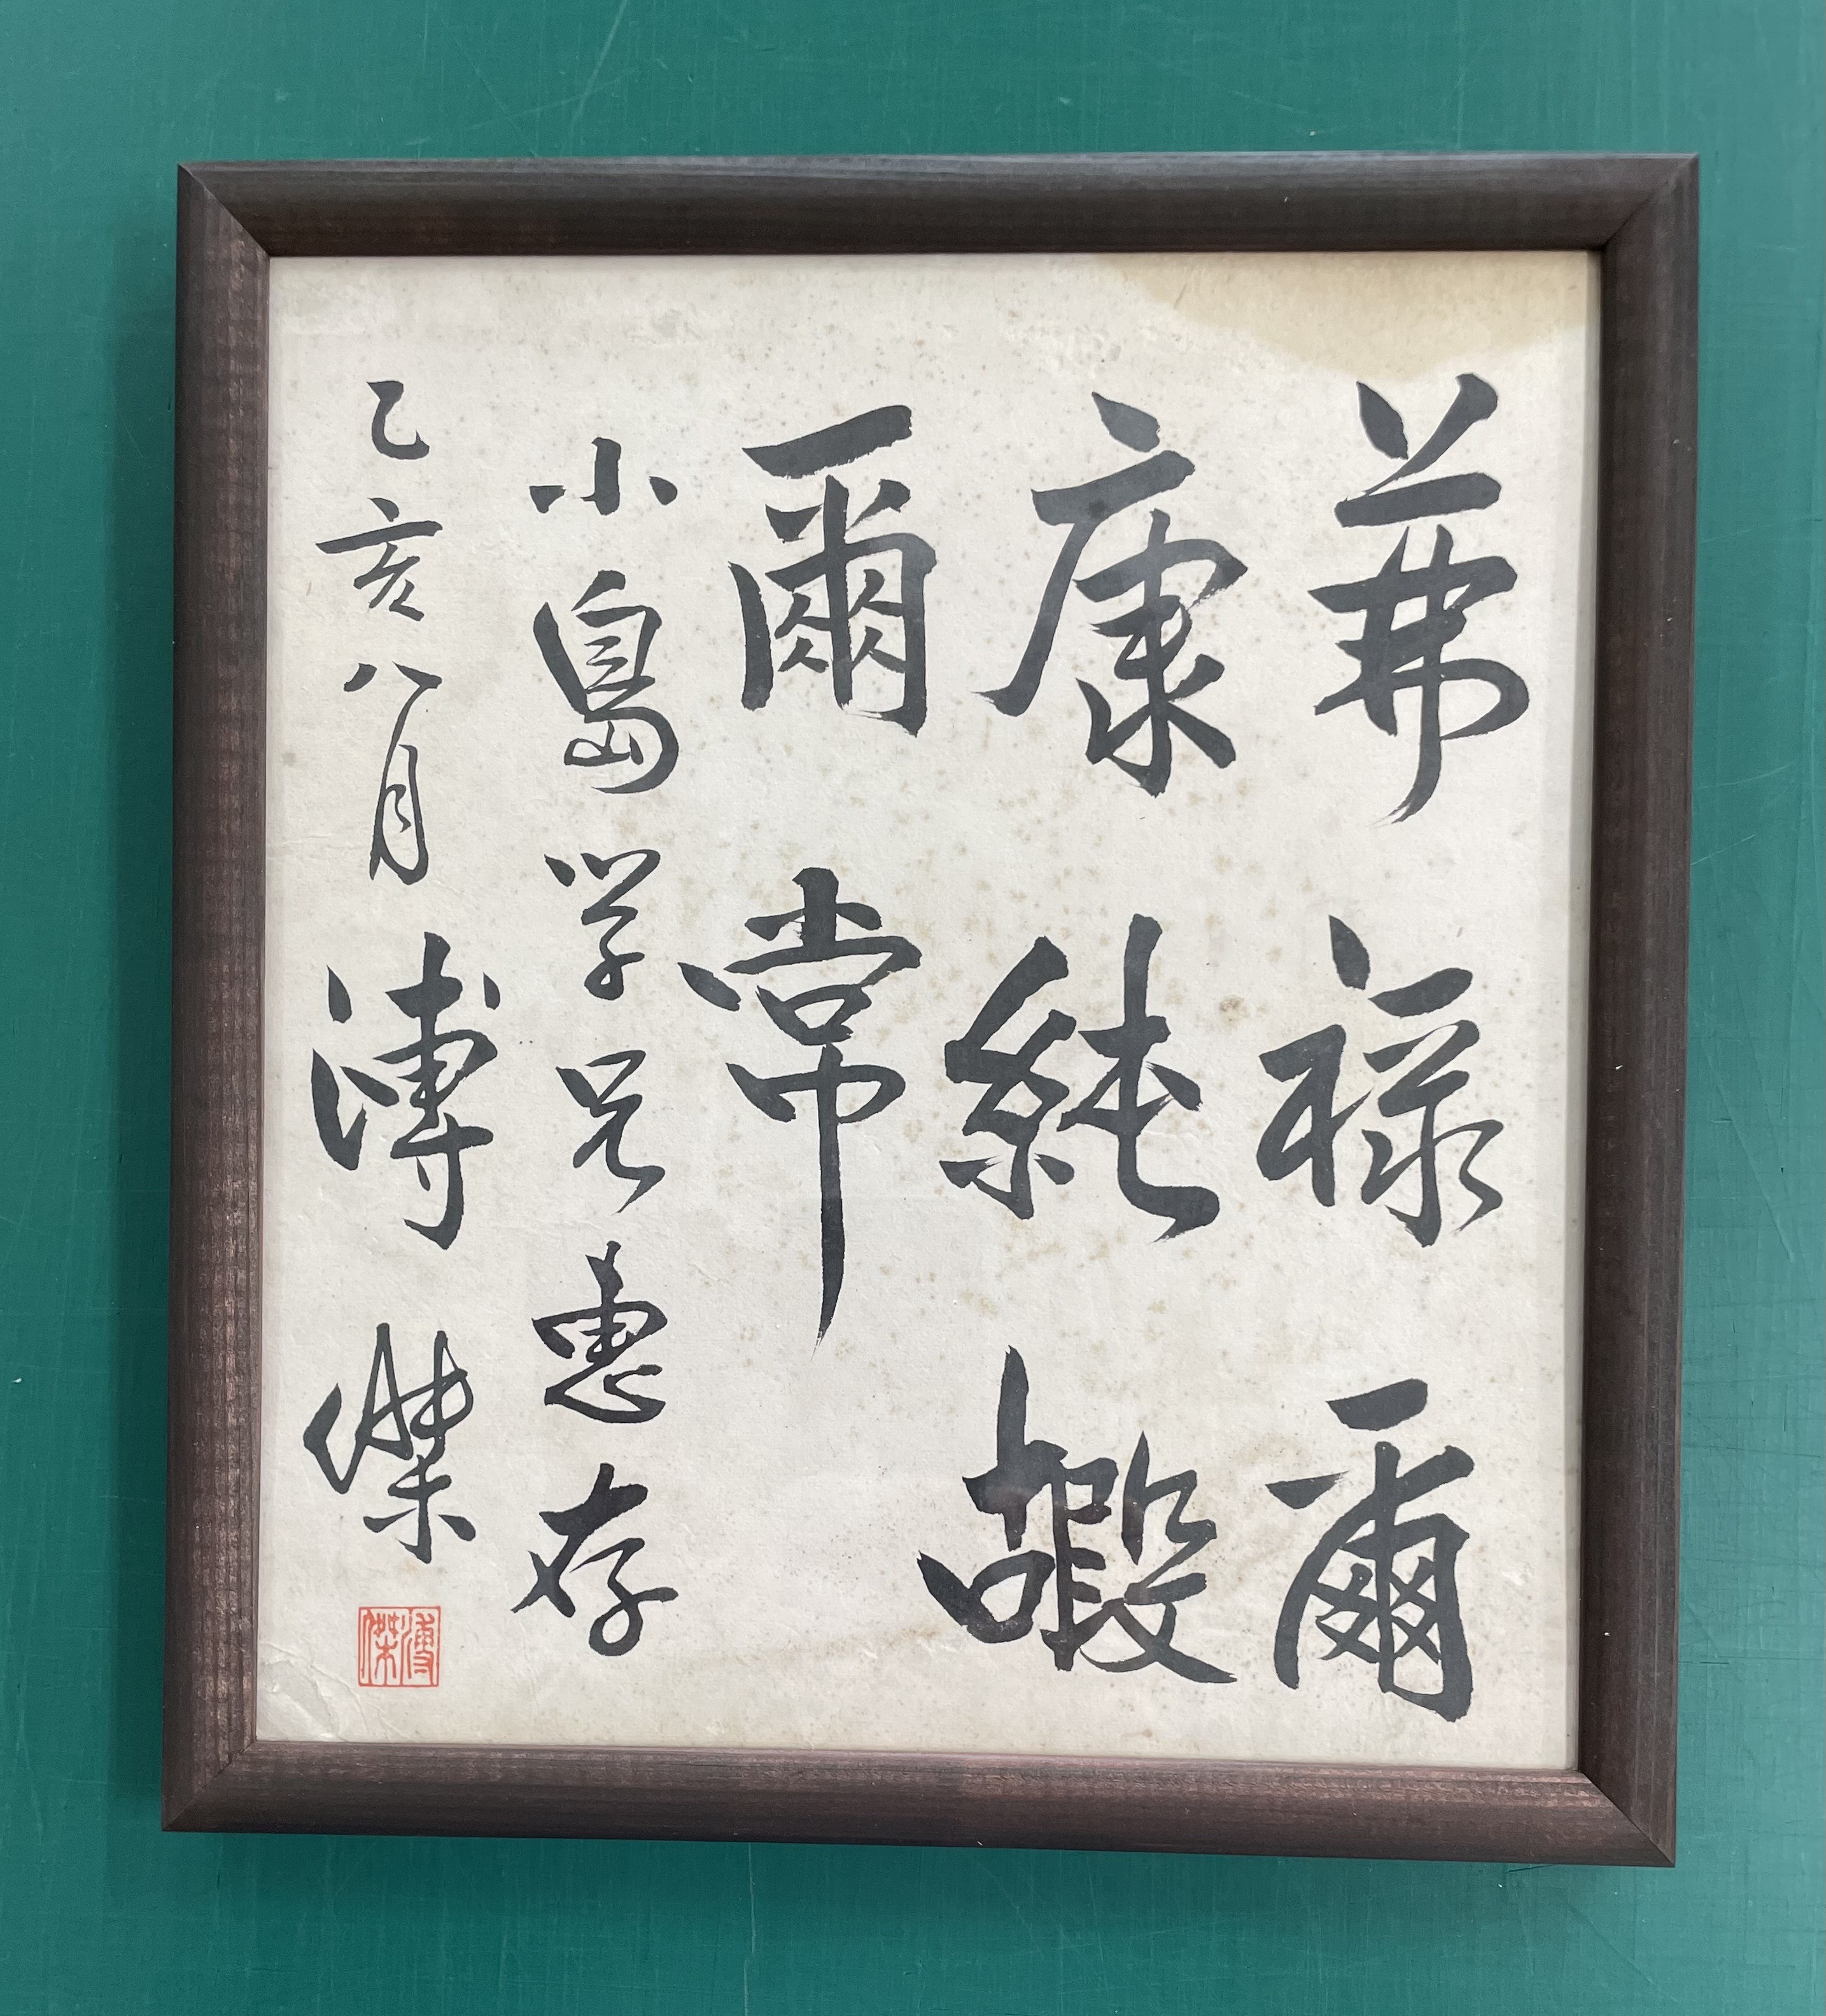 茀祿爾
康純嘏
爾常
小島学兄惠存
乙亥八月溥傑
溥傑